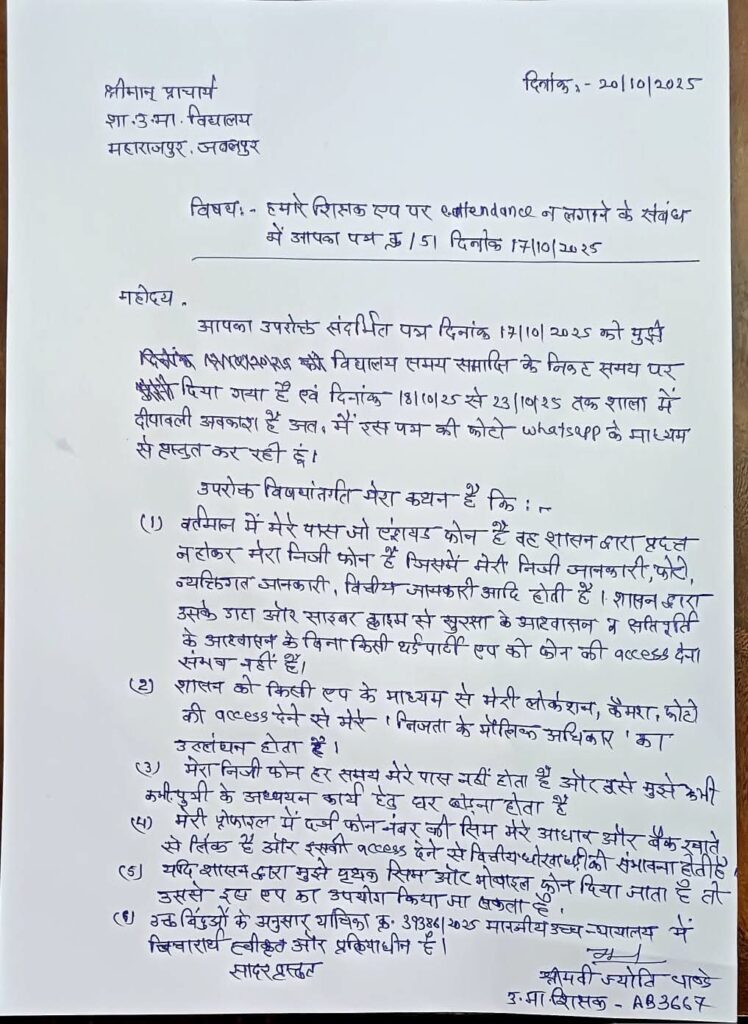 दिनांक:- 20/10/2025
श्रीमान् प्राचार्य
शा.उ.मा. विद्यालय
महाराजपुर, जबलपुर
विषय:- हमारे शिक्षक एप पर eattendance न लगाने के संबंध
में आपका पत्र क्र /51 दिनांक 17/10/2025
महोदय,
आपका उपरोक्त संदर्भित पत्र दिनांक 17/10/2025 को मुझे
विद्यालय समय समाप्ति के निकट समय पर
दिया गया है एवं दिनांक 18/10/25 से 23/10/25 तक शाला में
दीपावली अवकाश है अतः मैं इस पत्र की फोटो whatsapp के माध्यम
से प्रस्तुत कर रही हूं।
उपरोक्त विषयांतर्गत मेरा कथन है कि :-
(1) वर्तमान में मेरे पास जो एंड्रायड फोन है वह शासन द्वारा प्रदत्त
न होकर मेरा निजी फोन है जिसमें मेरी निजी जानकारी, फोटो,
व्यक्तिगत जानकारी, वित्तीय जानकारी आदि होती है। शासन द्वारा
उसके डाटा और साइबर क्राइम से सुरक्षा के आश्वासन व क्षतिपूर्ति
के आश्वासन के बिना किसी थर्डपार्टी एप को फोन की access देना
संभव नहीं है।
(2) शासन को किसी एप के माध्यम से मेरी लोकेशन, कैमरा, फोटो
की access देने से मेरे 'निजता के मौलिक अधिकार' का
उल्लंघन होता है।
(3) मेरा निजी फोन हर समय मेरे पास नहीं होता है और उसे मुझे कभी
कभी पुत्री के अध्ययन कार्य हेतु घर छोड़ना होता है
(4) मेरी प्रोफाइल में दर्ज फोन नंबर की सिम मेरे आधार और बैंक खाते
से लिंक है और इसकी access देने से वित्तीय धोखाधड़ी की संभावना होती है
(5) यदि शासन द्वारा मुझे पृथक सिम और मोबाइल फोन दिया जाता है तो
उससे इस एप का उपयोग किया जा सकता है.
(6) उक्त बिंदुओं के अनुसार याचिका क्र. 39386/2025 माननीय उच्च न्यायालय में
विचारार्थ स्वीकृत और प्रक्रियाधीन है।
सादर प्रस्तुत
श्रीमती ज्योति पाण्डे
उ.मा.शिक्षक - AB3667